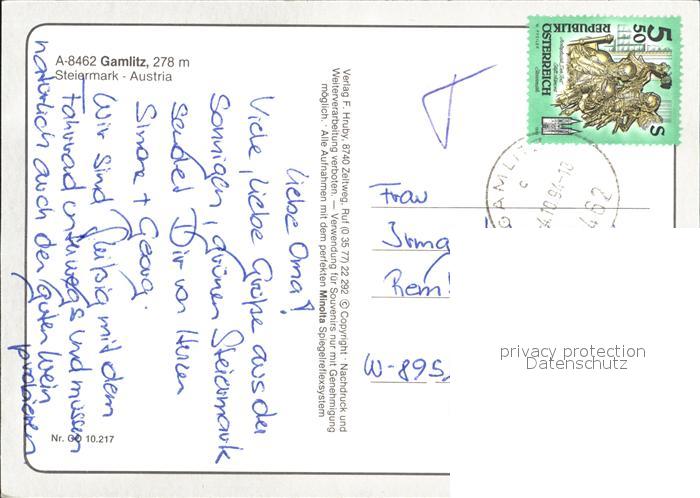 A-8462 Gamlitz, 278 m
Steiermark - Austria
Liebe Oma!
Viele, liebe Grüße aus der
Sonnigen, grünen Steiermark
sendet Dir von Herzen
Simone + Georg.
Wir sind fleißig mit dem
Fahrrad unterwegs und müssen
natürlich auch den guten Wein
probieren
Nr. GO 10.217
Verlag F. Hruby, 8740 Zeltweg, Ruf (0 35 77) 22 292 © Copyright - Nachdruck und
Weiterverarbeitung verboten. — Verwendung für Souvenirs nur mit Genehmigung
möglich. - Alle Aufnahmen mit dem perfekten Minolta Spiegelreflexsystem
5 50
S
REPUBLIK
ÖSTERREICH
GAMLI
4.10.94-10
462
c
Frau
Irmg
Rem
W-895
privacy protection
Datenschutz